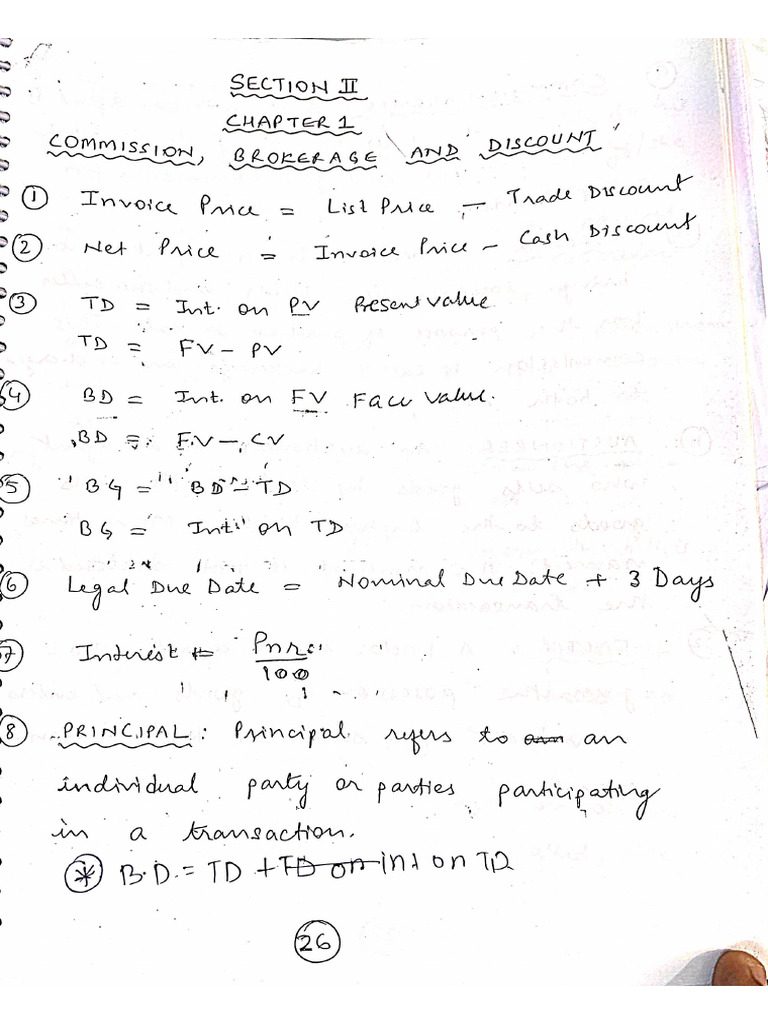 SECTION II
CHAPTER 1
COMMISSION, BROKERAGE AND DISCOUNT
① Invoice Price = List Price - Trade Discount
② Net Price = Invoice Price - Cash Discount
③ TD = Int. on PV Present Value
TD = FV - PV
④ BD = Int. on FV Face Value.
BD = FV - CV
⑤ BG = BD - TD
BG = Int on TD
⑥ Legal Due Date = Nominal Due Date + 3 Days
⑦ Interest = Pnr
100
⑧ PRINCIPAL: Principal refers to an
individual party or parties participating
in a transaction.
* B.D. = TD + TD on int on TD
26